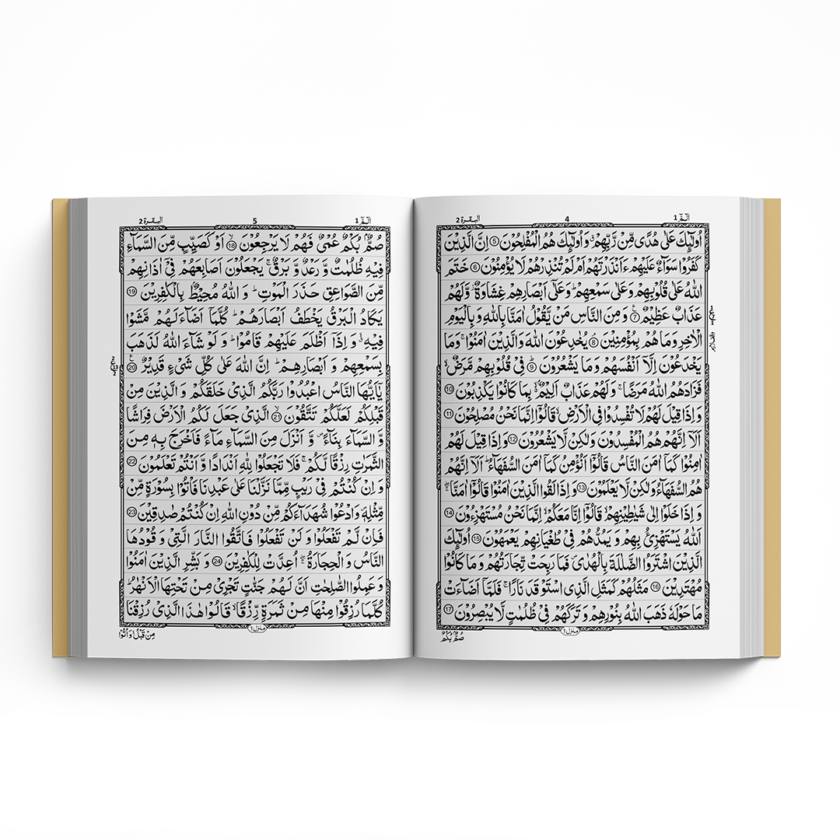 الٓمّٓ 1
4
البقرة 2
اُولٰٓئِكَ عَلٰى هُدًى مِّنْ رَّبِّهِمْ ۙ وَ اُولٰٓئِكَ هُمُ الْمُفْلِحُوْنَ ⑤ اِنَّ الَّذِيْنَ
كَفَرُوْا سَوَآءٌ عَلَيْهِمْ ءَاَنْذَرْتَهُمْ اَمْ لَمْ تُنْذِرْهُمْ لَا يُؤْمِنُوْنَ ⑥ خَتَمَ
اللّٰهُ عَلٰى قُلُوْبِهِمْ وَ عَلٰى سَمْعِهِمْ ؕ وَ عَلٰٓى اَبْصَارِهِمْ غِشَاوَةٌ ؗ وَّ لَهُمْ
عَذَابٌ عَظِيْمٌ ⑦ وَ مِنَ النَّاسِ مَنْ يَّقُوْلُ اٰمَنَّا بِاللّٰهِ وَ بِالْيَوْمِ
الْاٰخِرِ وَ مَا هُمْ بِمُؤْمِنِيْنَ ⑧ يُخٰدِعُوْنَ اللّٰهَ وَ الَّذِيْنَ اٰمَنُوْا ۚ وَ مَا
يَخْدَعُوْنَ اِلَّاۤ اَنْفُسَهُمْ وَ مَا يَشْعُرُوْنَ ⑨ فِيْ قُلُوْبِهِمْ مَّرَضٌ ۙ
فَزَادَهُمُ اللّٰهُ مَرَضًا ۚ وَ لَهُمْ عَذَابٌ اَلِيْمٌۢ ۙ بِمَا كَانُوْا يَكْذِبُوْنَ ⑩
وَ اِذَا قِيْلَ لَهُمْ لَا تُفْسِدُوْا فِي الْاَرْضِ ۙ قَالُوْۤا اِنَّمَا نَحْنُ مُصْلِحُوْنَ ⑪
اَلَاۤ اِنَّهُمْ هُمُ الْمُفْسِدُوْنَ وَ لٰكِنْ لَّا يَشْعُرُوْنَ ⑫ وَ اِذَا قِيْلَ لَهُمْ
اٰمِنُوْا كَمَاۤ اٰمَنَ النَّاسُ قَالُوْۤا اَنُؤْمِنُ كَمَاۤ اٰمَنَ السُّفَهَآءُ ؕ اَلَاۤ اِنَّهُمْ
هُمُ السُّفَهَآءُ وَ لٰكِنْ لَّا يَعْلَمُوْنَ ⑬ وَ اِذَا لَقُوا الَّذِيْنَ اٰمَنُوْا قَالُوْۤا اٰمَنَّا ۖۚ
وَ اِذَا خَلَوْا اِلٰى شَيٰطِيْنِهِمْ ۙ قَالُوْۤا اِنَّا مَعَكُمْ ۙ اِنَّمَا نَحْنُ مُسْتَهْزِءُوْنَ ⑭
اَللّٰهُ يَسْتَهْزِئُ بِهِمْ وَ يَمُدُّهُمْ فِيْ طُغْيَانِهِمْ يَعْمَهُوْنَ ⑮ اُولٰٓئِكَ
الَّذِيْنَ اشْتَرَوُا الضَّلٰلَةَ بِالْهُدٰى ۪ فَمَا رَبِحَتْ تِّجَارَتُهُمْ وَ مَا كَانُوْا
مُهْتَدِيْنَ ⑯ مَثَلُهُمْ كَمَثَلِ الَّذِي اسْتَوْقَدَ نَارًا ۚ فَلَمَّاۤ اَضَآءَتْ
مَا حَوْلَهٗ ذَهَبَ اللّٰهُ بِنُوْرِهِمْ وَ تَرَكَهُمْ فِيْ ظُلُمٰتٍ لَّا يُبْصِرُوْنَ ⑰
منزل ۱
صُمٌّۢ بُكْمٌ
الٓمّٓ 1
5
البقرة 2
صُمٌّۢ بُكْمٌ عُمْيٌ فَهُمْ لَا يَرْجِعُوْنَ ⑱ اَوْ كَصَيِّبٍ مِّنَ السَّمَآءِ
فِيْهِ ظُلُمٰتٌ وَّ رَعْدٌ وَّ بَرْقٌ ۚ يَجْعَلُوْنَ اَصَابِعَهُمْ فِيْۤ اٰذَانِهِمْ
مِّنَ الصَّوَاعِقِ حَذَرَ الْمَوْتِ ؕ وَ اللّٰهُ مُحِيْطٌۢ بِالْكٰفِرِيْنَ ⑲
يَكَادُ الْبَرْقُ يَخْطَفُ اَبْصَارَهُمْ ؕ كُلَّمَاۤ اَضَآءَ لَهُمْ مَّشَوْا
فِيْهِ ۙ وَ اِذَاۤ اَظْلَمَ عَلَيْهِمْ قَامُوْا ؕ وَ لَوْ شَآءَ اللّٰهُ لَذَهَبَ
بِسَمْعِهِمْ وَ اَبْصَارِهِمْ ؕ اِنَّ اللّٰهَ عَلٰى كُلِّ شَيْءٍ قَدِيْرٌ ⑳
يٰۤاَيُّهَا النَّاسُ اعْبُدُوْا رَبَّكُمُ الَّذِيْ خَلَقَكُمْ وَ الَّذِيْنَ مِنْ
قَبْلِكُمْ لَعَلَّكُمْ تَتَّقُوْنَ ㉑ الَّذِيْ جَعَلَ لَكُمُ الْاَرْضَ فِرَاشًا
وَّ السَّمَآءَ بِنَآءً ۪ وَّ اَنْزَلَ مِنَ السَّمَآءِ مَآءً فَاَخْرَجَ بِهٖ مِنَ
الثَّمَرٰتِ رِزْقًا لَّكُمْ ۚ فَلَا تَجْعَلُوْا لِلّٰهِ اَنْدَادًا وَّ اَنْتُمْ تَعْلَمُوْنَ ㉒
وَ اِنْ كُنْتُمْ فِيْ رَيْبٍ مِّمَّا نَزَّلْنَا عَلٰى عَبْدِنَا فَاْتُوْا بِسُوْرَةٍ مِّنْ
مِّثْلِهٖ ۪ وَ ادْعُوْا شُهَدَآءَكُمْ مِّنْ دُوْنِ اللّٰهِ اِنْ كُنْتُمْ صٰدِقِيْنَ ㉓
فَاِنْ لَّمْ تَفْعَلُوْا وَ لَنْ تَفْعَلُوْا فَاتَّقُوا النَّارَ الَّتِيْ وَ قُوْدُهَا
النَّاسُ وَ الْحِجَارَةُ ۖۚ اُعِدَّتْ لِلْكٰفِرِيْنَ ㉔ وَ بَشِّرِ الَّذِيْنَ اٰمَنُوْا
وَ عَمِلُوا الصّٰلِحٰتِ اَنَّ لَهُمْ جَنّٰتٍ تَجْرِيْ مِنْ تَحْتِهَا الْاَنْهٰرُ ؕ
كُلَّمَا رُزِقُوْا مِنْهَا مِنْ ثَمَرَةٍ رِّزْقًا ۙ قَالُوْا هٰذَا الَّذِيْ رُزِقْنَا
منزل ۱
مِنْ قَبْلُ وَ اُتُوْا